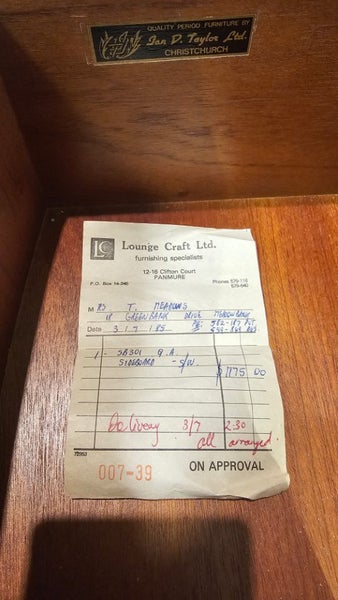 QUALITY PERIOD FURNITURE BY
Ian D. Taylor Ltd.
CHRISTCHURCH
LC
Lounge Craft Ltd.
furnishing specialists
12-16 Clifton Court
PANMURE
P.O. Box 14-246
Phones 579-116
579-640
MRS T. MEADOWS
18 GREENBANK DRIVE
Date 3 / 7 / 85
1 - SB301 Q.A.
SIDEBOARD - S/W.
$1175 00
Delivery 3/7 2.30
all arranged
72953
007-39
ON APPROVAL